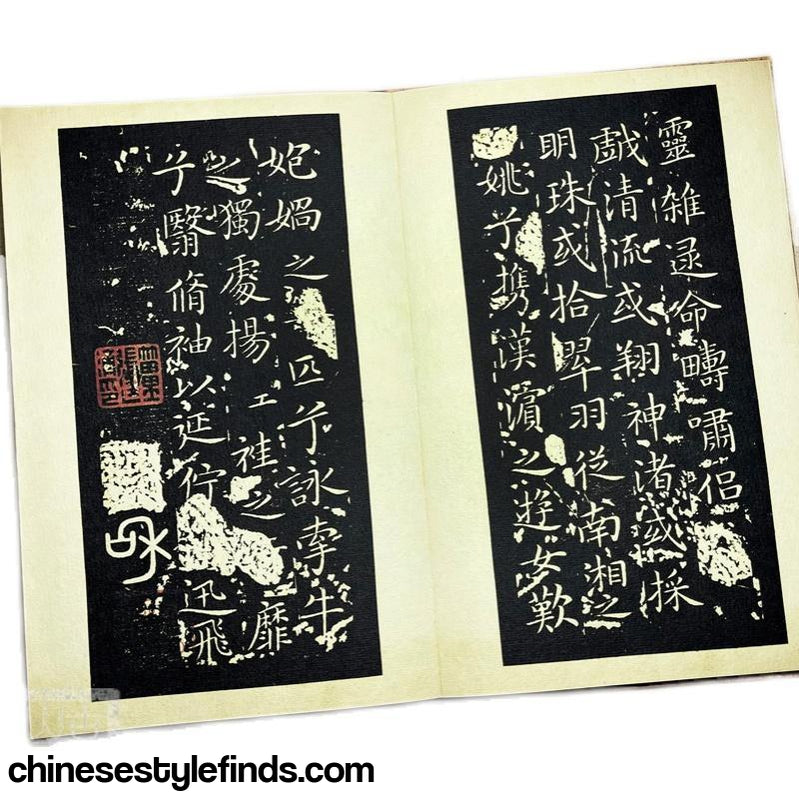 靈雜遝命疇嘯侶
戯清流或翔神渚或採
明珠或拾翠羽從南湘之
姚兮携漢濱之遊女歎
媧之匹兮詠牽牛
之獨處揚袿之靡
兮翳脩袖以延佇迅飛
chinesestylefinds.com